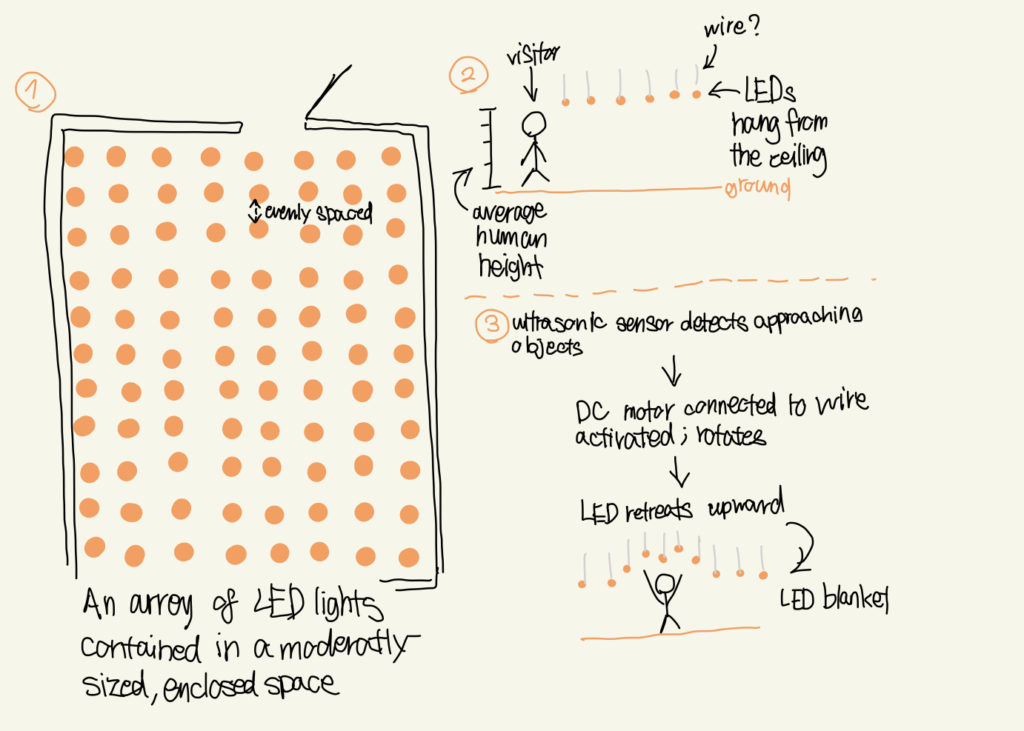 1
evenly spaced
An array of LED lights
contained in a moderatly
sized, enclosed space
2
visitor
wire?
LEDs
hang from
the ceiling
ground
average
human
height
3 ultrasonic sensor detects approaching
objects
DC motor connected to wire
activated; rotates
LED retreats upward
LED blanket